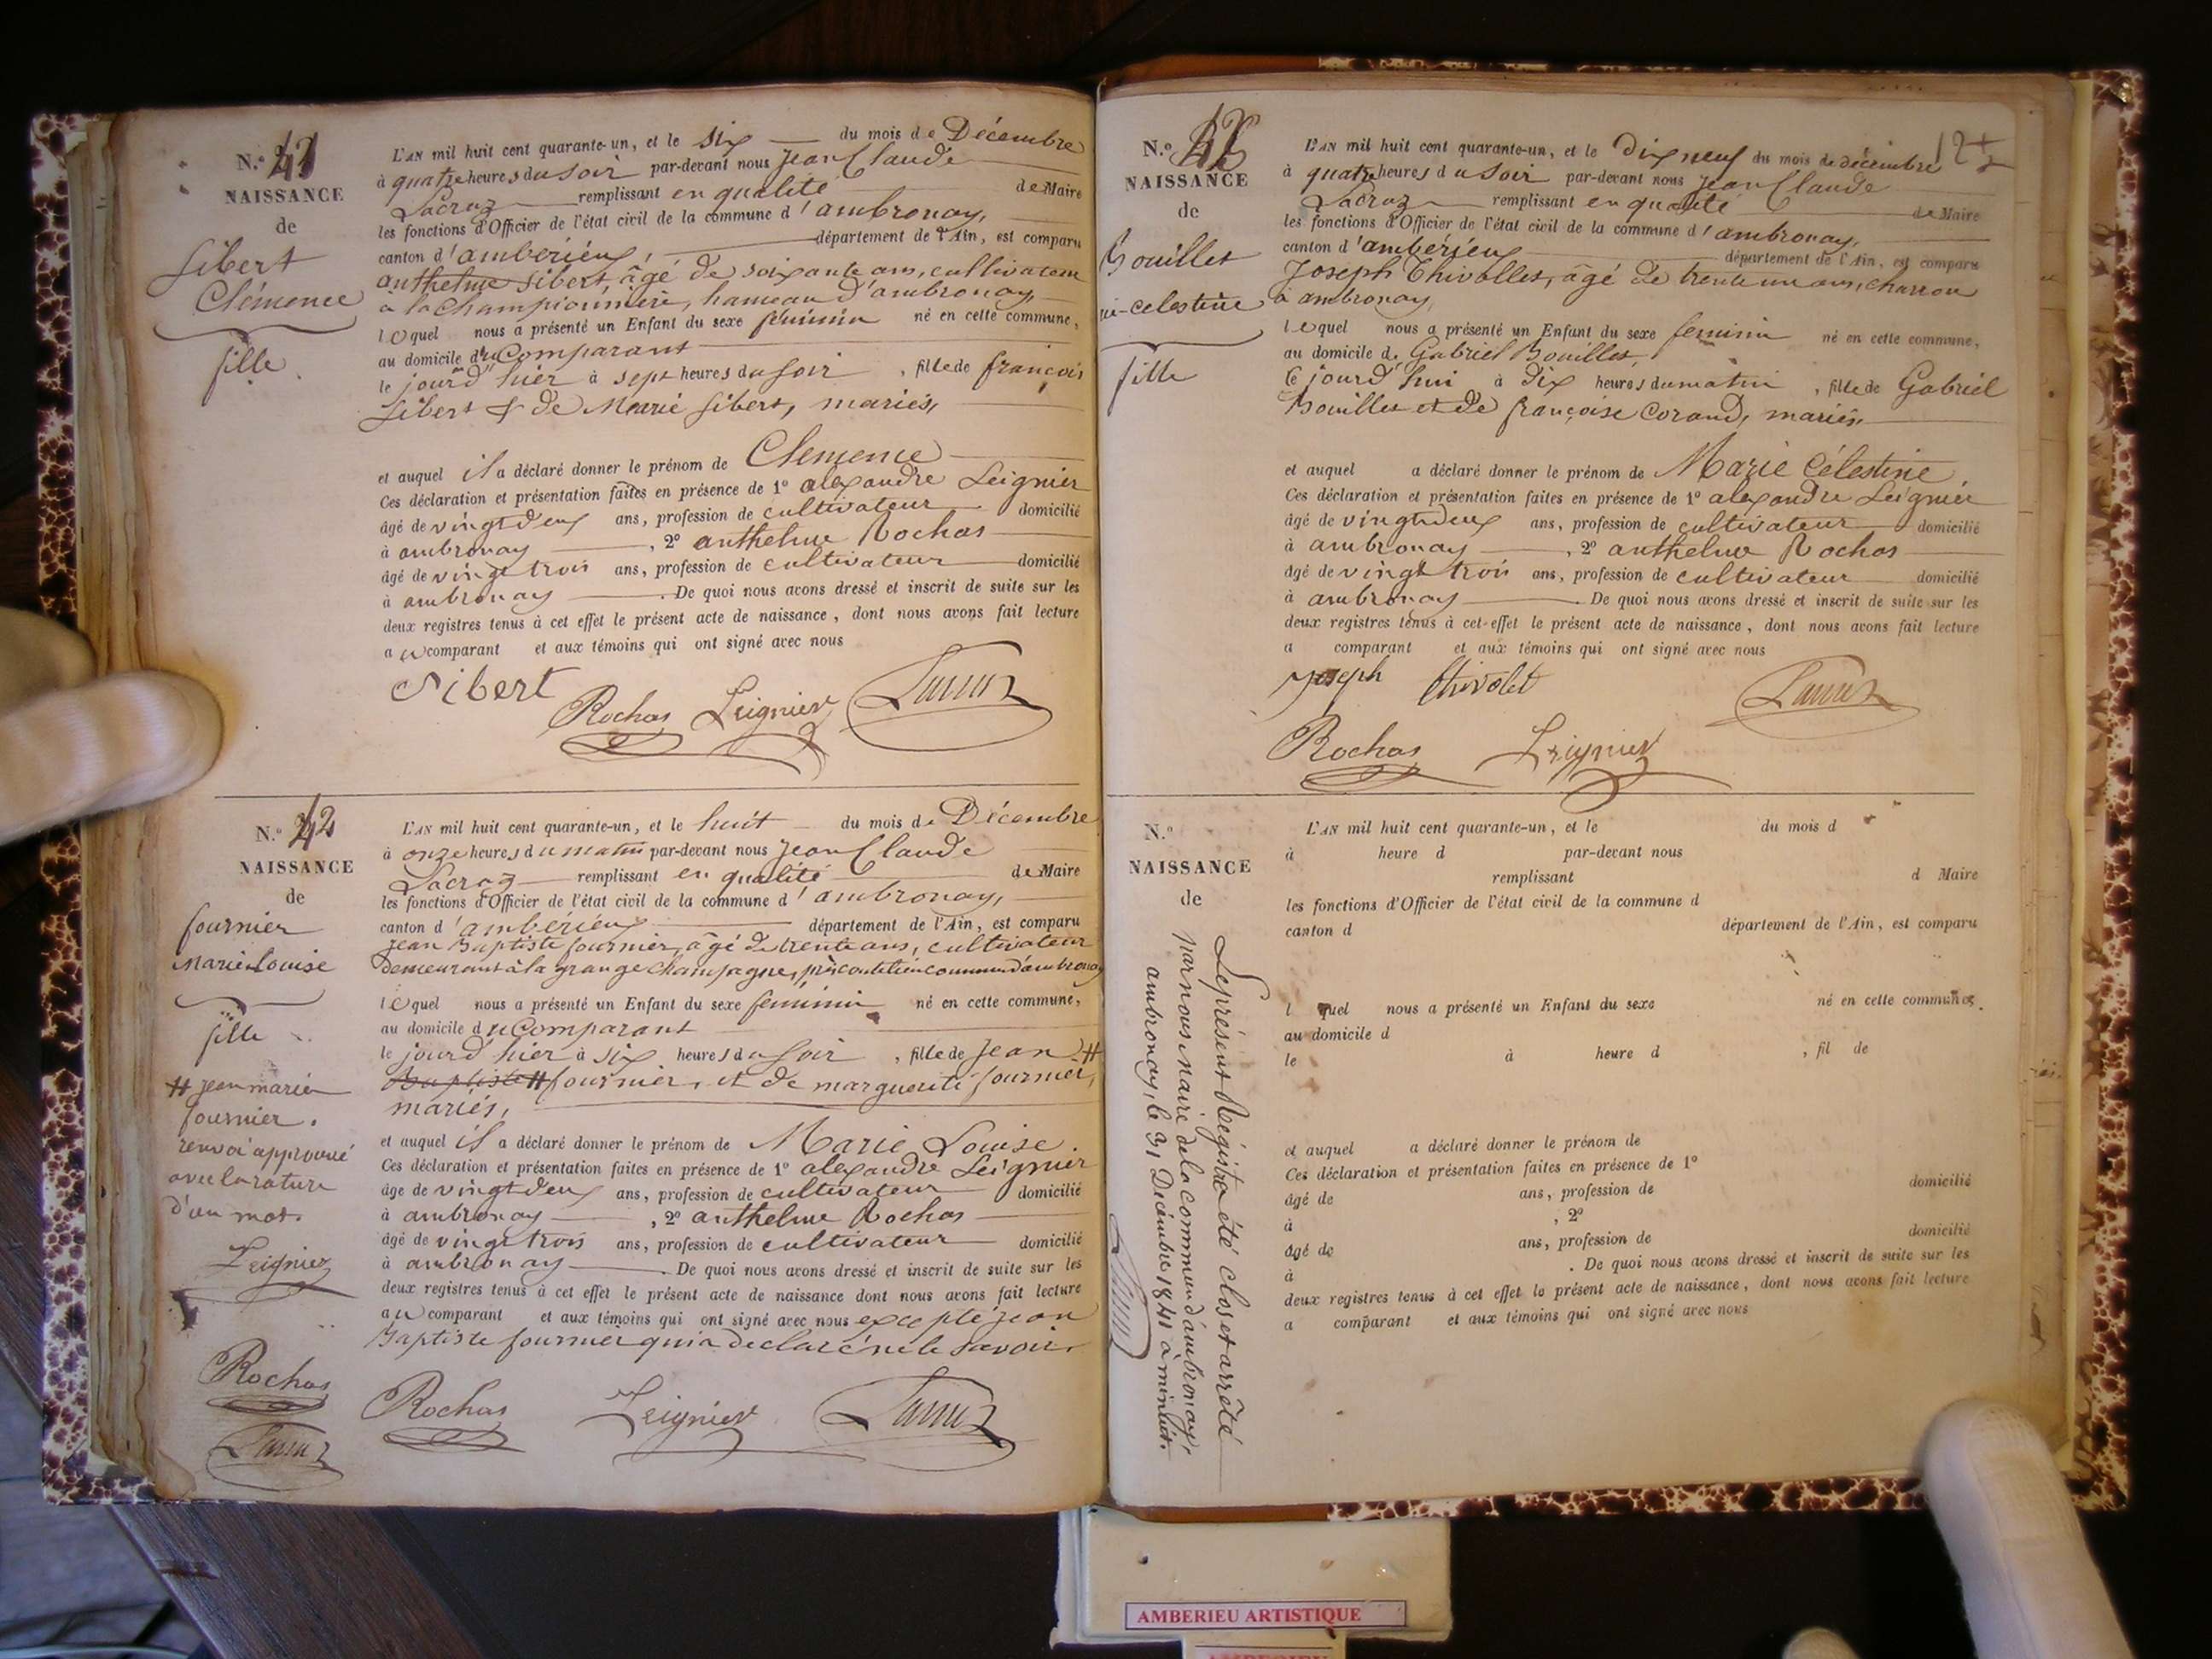 N.º 41
NAISSANCE
de
Sibert
Clémence
fille
L'AN mil huit cent quarante-un, et le six du mois de Décembre
à quatre heures du soir par-devant nous Jean Claude
Lacroz remplissant en qualité de Maire
les fonctions d'Officier de l'état civil de la commune d'ambronay,
canton d'ambérieux, département de l'Ain, est comparu
anthelme Sibert, âgé de soixante ans, cultivateur
à la Championnière, hameau d'ambronay,
lequel nous a présenté un Enfant du sexe féminin né en cette commune,
au domicile du Comparant
le jourd'hier à sept heures du soir, fille de françois
Sibert & de Marie Sibert, mariés,
et auquel il a déclaré donner le prénom de Clemence
Ces déclaration et présentation faites en présence de 1º alexandre Leignier
âgé de vingt deux ans, profession de cultivateur domicilié
à ambronay, 2º anthelme Rochas
âgé de vingt trois ans, profession de cultivateur domicilié
à ambronay. De quoi nous avons dressé et inscrit de suite sur les
deux registres tenus à cet effet le présent acte de naissance, dont nous avons fait lecture
au comparant et aux témoins qui ont signé avec nous
Sibert
Rochas Leignier Lacroz
N.º 42
NAISSANCE
de
fournier
Marie Louise
fille
# jean marie
fournier.
renvoi approuvé
avec la rature
d'un mot.
Leignier
Rochas
Lacroz
L'AN mil huit cent quarante-un, et le huit du mois de Décembre
à onze heures du matin par-devant nous Jean Claude
Lacroz remplissant en qualité de Maire
les fonctions d'Officier de l'état civil de la commune d'ambronay,
canton d'ambérieux département de l'Ain, est comparu
Jean Baptiste fournier, âgé de trente ans, cultivateur
demeurant à la grange Champagne, commune d'ambronay
lequel nous a présenté un Enfant du sexe féminin né en cette commune,
au domicile du Comparant
le jourd'hier à six heures du soir, fille de Jean #
Baptiste # fournier, et de marguerite fournier,
mariés,
et auquel il a déclaré donner le prénom de Marie Louise.
Ces déclaration et présentation faites en présence de 1º alexandre Leignier
âgé de vingt deux ans, profession de cultivateur domicilié
à ambronay, 2º anthelme Rochas
âgé de vingt trois ans, profession de cultivateur domicilié
à ambronay. De quoi nous avons dressé et inscrit de suite sur les
deux registres tenus à cet effet le présent acte de naissance dont nous avons fait lecture
au comparant et aux témoins qui ont signé avec nous excepté jean
Baptiste fournier qui a declaré ne le savoir.
Rochas Leignier Lacroz
N.º
NAISSANCE
de
Bouillet
ie-celestine
fille
L'AN mil huit cent quarante-un, et le Dix neuf du mois de décembre
à quatre heures du soir par-devant nous Jean Claude
Lacroz remplissant en qualité de Maire
les fonctions d'Officier de l'état civil de la commune d'ambronay,
canton d'ambérieux département de l'Ain, est comparu
Joseph Chivollet, âgé de trente un ans, charron
à ambronay,
lequel nous a présenté un Enfant du sexe feminin né en cette commune,
au domicile de Gabriel Bouillet,
le jourd'hui à dix heures du matin, fille de Gabriel
Bouillet et de françoise Corand, mariés,
et auquel a déclaré donner le prénom de Marie Célestine
Ces déclaration et présentation faites en présence de 1º alexandre Leignier
âgé de vingt deux ans, profession de cultivateur domicilié
à ambronay, 2º anthelme Rochas
âgé de vingt trois ans, profession de cultivateur domicilié
à ambronay. De quoi nous avons dressé et inscrit de suite sur les
deux registres tenus à cet effet le présent acte de naissance, dont nous avons fait lecture
a comparant et aux témoins qui ont signé avec nous
Joseph Chivolet Lacroz
Rochas Leignier
N.º
NAISSANCE
de
Le présent Régistre été clos et arrêté
par nous maire de la commune d'ambronay,
ambronay, le 31 Décembre 1841 à minuit.
Lacroz
L'AN mil huit cent quarante-un, et le du mois d
à heure d par-devant nous
remplissant d Maire
les fonctions d'Officier de l'état civil de la commune d
canton d département de l'Ain, est comparu
l quel nous a présenté un Enfant du sexe né en cette commune,
au domicile d
le à heure d , fil de
et auquel a déclaré donner le prénom de
Ces déclaration et présentation faites en présence de 1º
âgé de ans, profession de domicilié
à , 2º
âgé de ans, profession de domicilié
à . De quoi nous avons dressé et inscrit de suite sur les
deux registres tenus à cet effet le présent acte de naissance, dont nous avons fait lecture
a comparant et aux témoins qui ont signé avec nous
AMBERIEU ARTISTIQUE